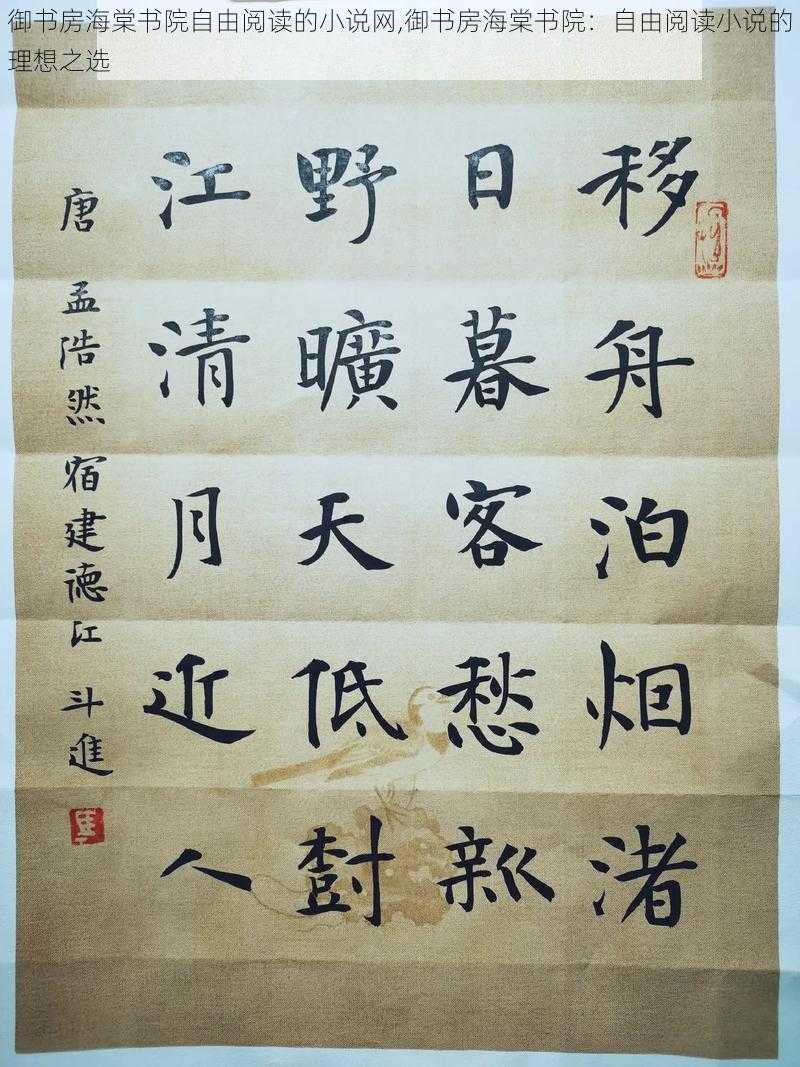 御书房海棠书院自由阅读的小说网,御书房海棠书院：自由阅读小说的
理想之选
移舟泊烟渚
日暮客愁新
野曠天低樹
江清月近人
唐 孟浩然 宿建德江 斗進